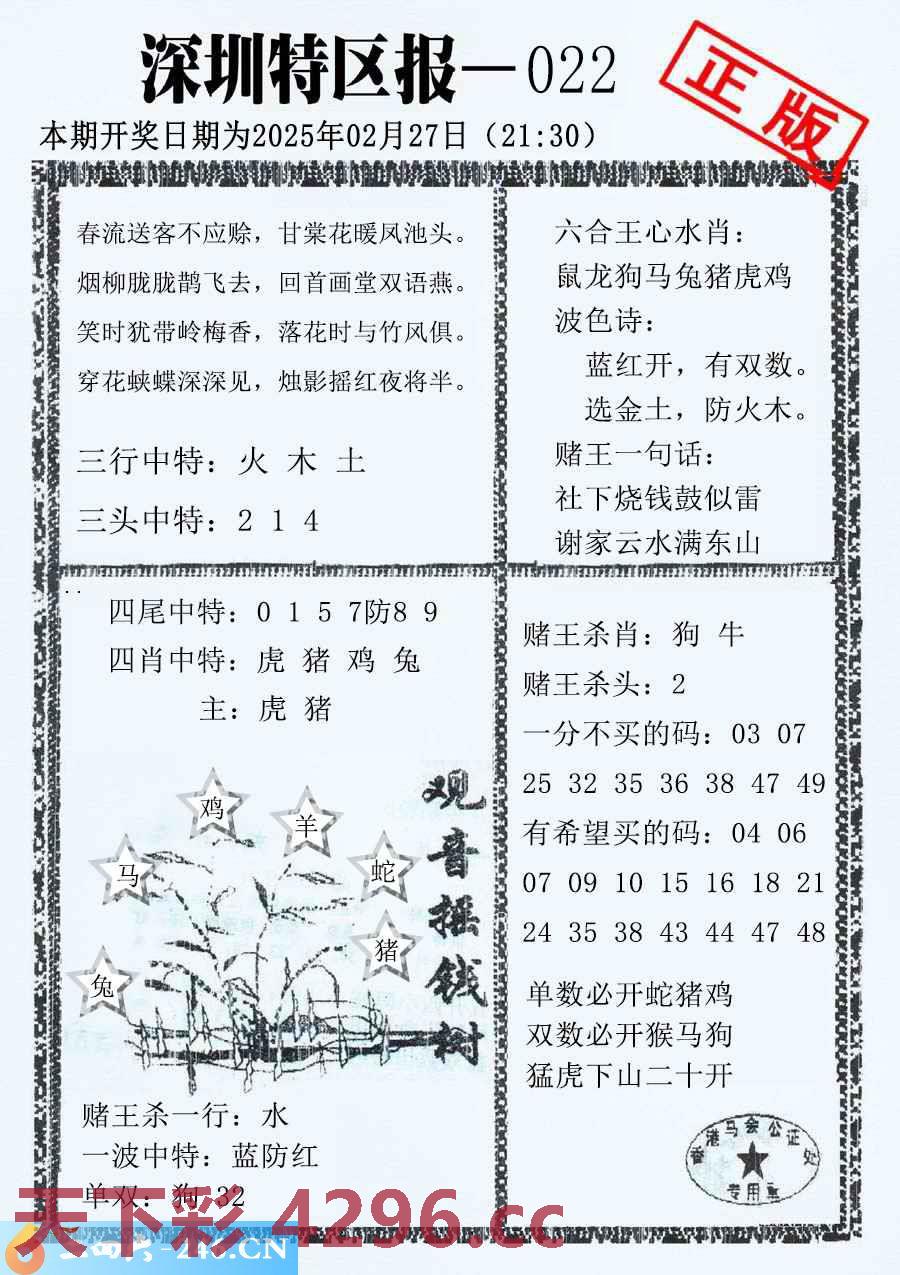 深圳特区报—022
正版
本期开奖日期为2025年02月27日（21:30）
春流送客不应赊，甘棠花暖凤池头。
烟柳胧胧鹊飞去，回首画堂双语燕。
笑时犹带岭梅香，落花时与竹风俱。
穿花蛱蝶深深见，烛影摇红夜将半。
三行中特：火 木 土
三头中特：2 1 4
六合王心水肖：
鼠龙狗马兔猪虎鸡
波色诗：
蓝红开，有双数。
选金土，防火木。
赌王一句话：
社下烧钱鼓似雷
谢家云水满东山
四尾中特：0 1 5 7防8 9
四肖中特：虎 猪 鸡 兔
主：虎 猪
鸡
羊
马
蛇
猪
兔
观音摇钱树
赌王杀一行：水
一波中特：蓝防红
单双：狗 32
赌王杀肖：狗 牛
赌王杀头：2
一分不买的码：03 07
25 32 35 36 38 47 49
有希望买的码：04 06
07 09 10 15 16 18 21
24 35 38 43 44 47 48
单数必开蛇猪鸡
双数必开猴马狗
猛虎下山二十开
香港马会公证处
专用章
天下彩 4296.cc
-246.CN